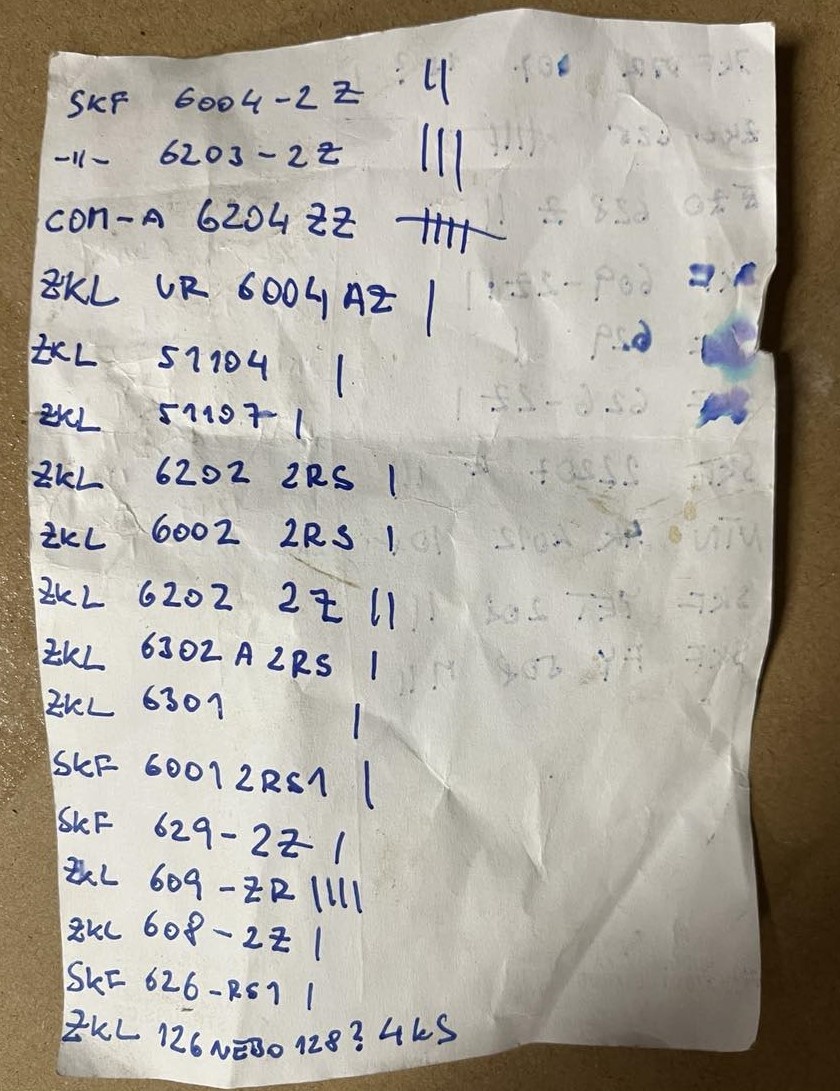 SKF 6004-2Z ||
-||- 6203-2Z |||
COM-A 6204 ZZ ||||
ZKL VR 6004 AZ |
ZKL 51104 |
ZKL 51107 |
ZKL 6202 2RS |
ZKL 6002 2RS |
ZKL 6202 2Z ||
ZKL 6302 A 2RS |
ZKL 6301 |
SKF 6001 2RS1 |
SKF 629-2Z |
ZKL 609-ZR ||||
ZKL 608-2Z |
SKF 626-RS1 |
ZKL 126 NEBO 128? 4KS